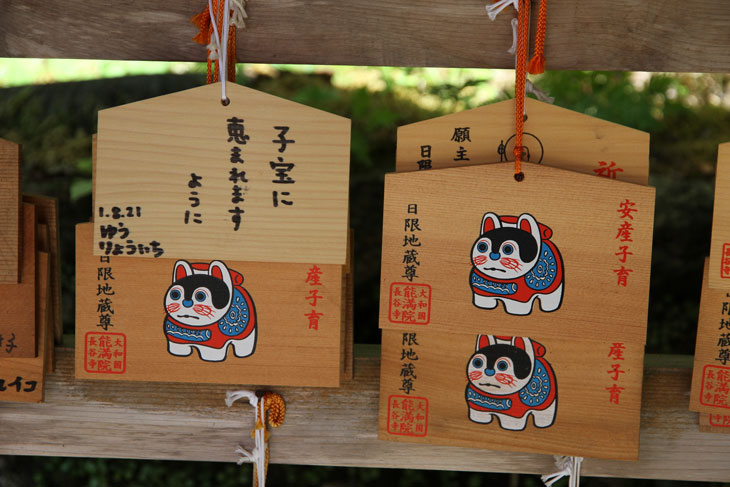 子宝に
恵まれます
ように
1.8.21
ゆう
りょういち
日限地蔵尊
大和國
能満院
長谷寺
産子育
願主
日限
祈
安産子育
日限地蔵尊
大和國
能満院
長谷寺
限地蔵尊
大和國
能満院
長谷寺
産子育
地蔵尊
イコ